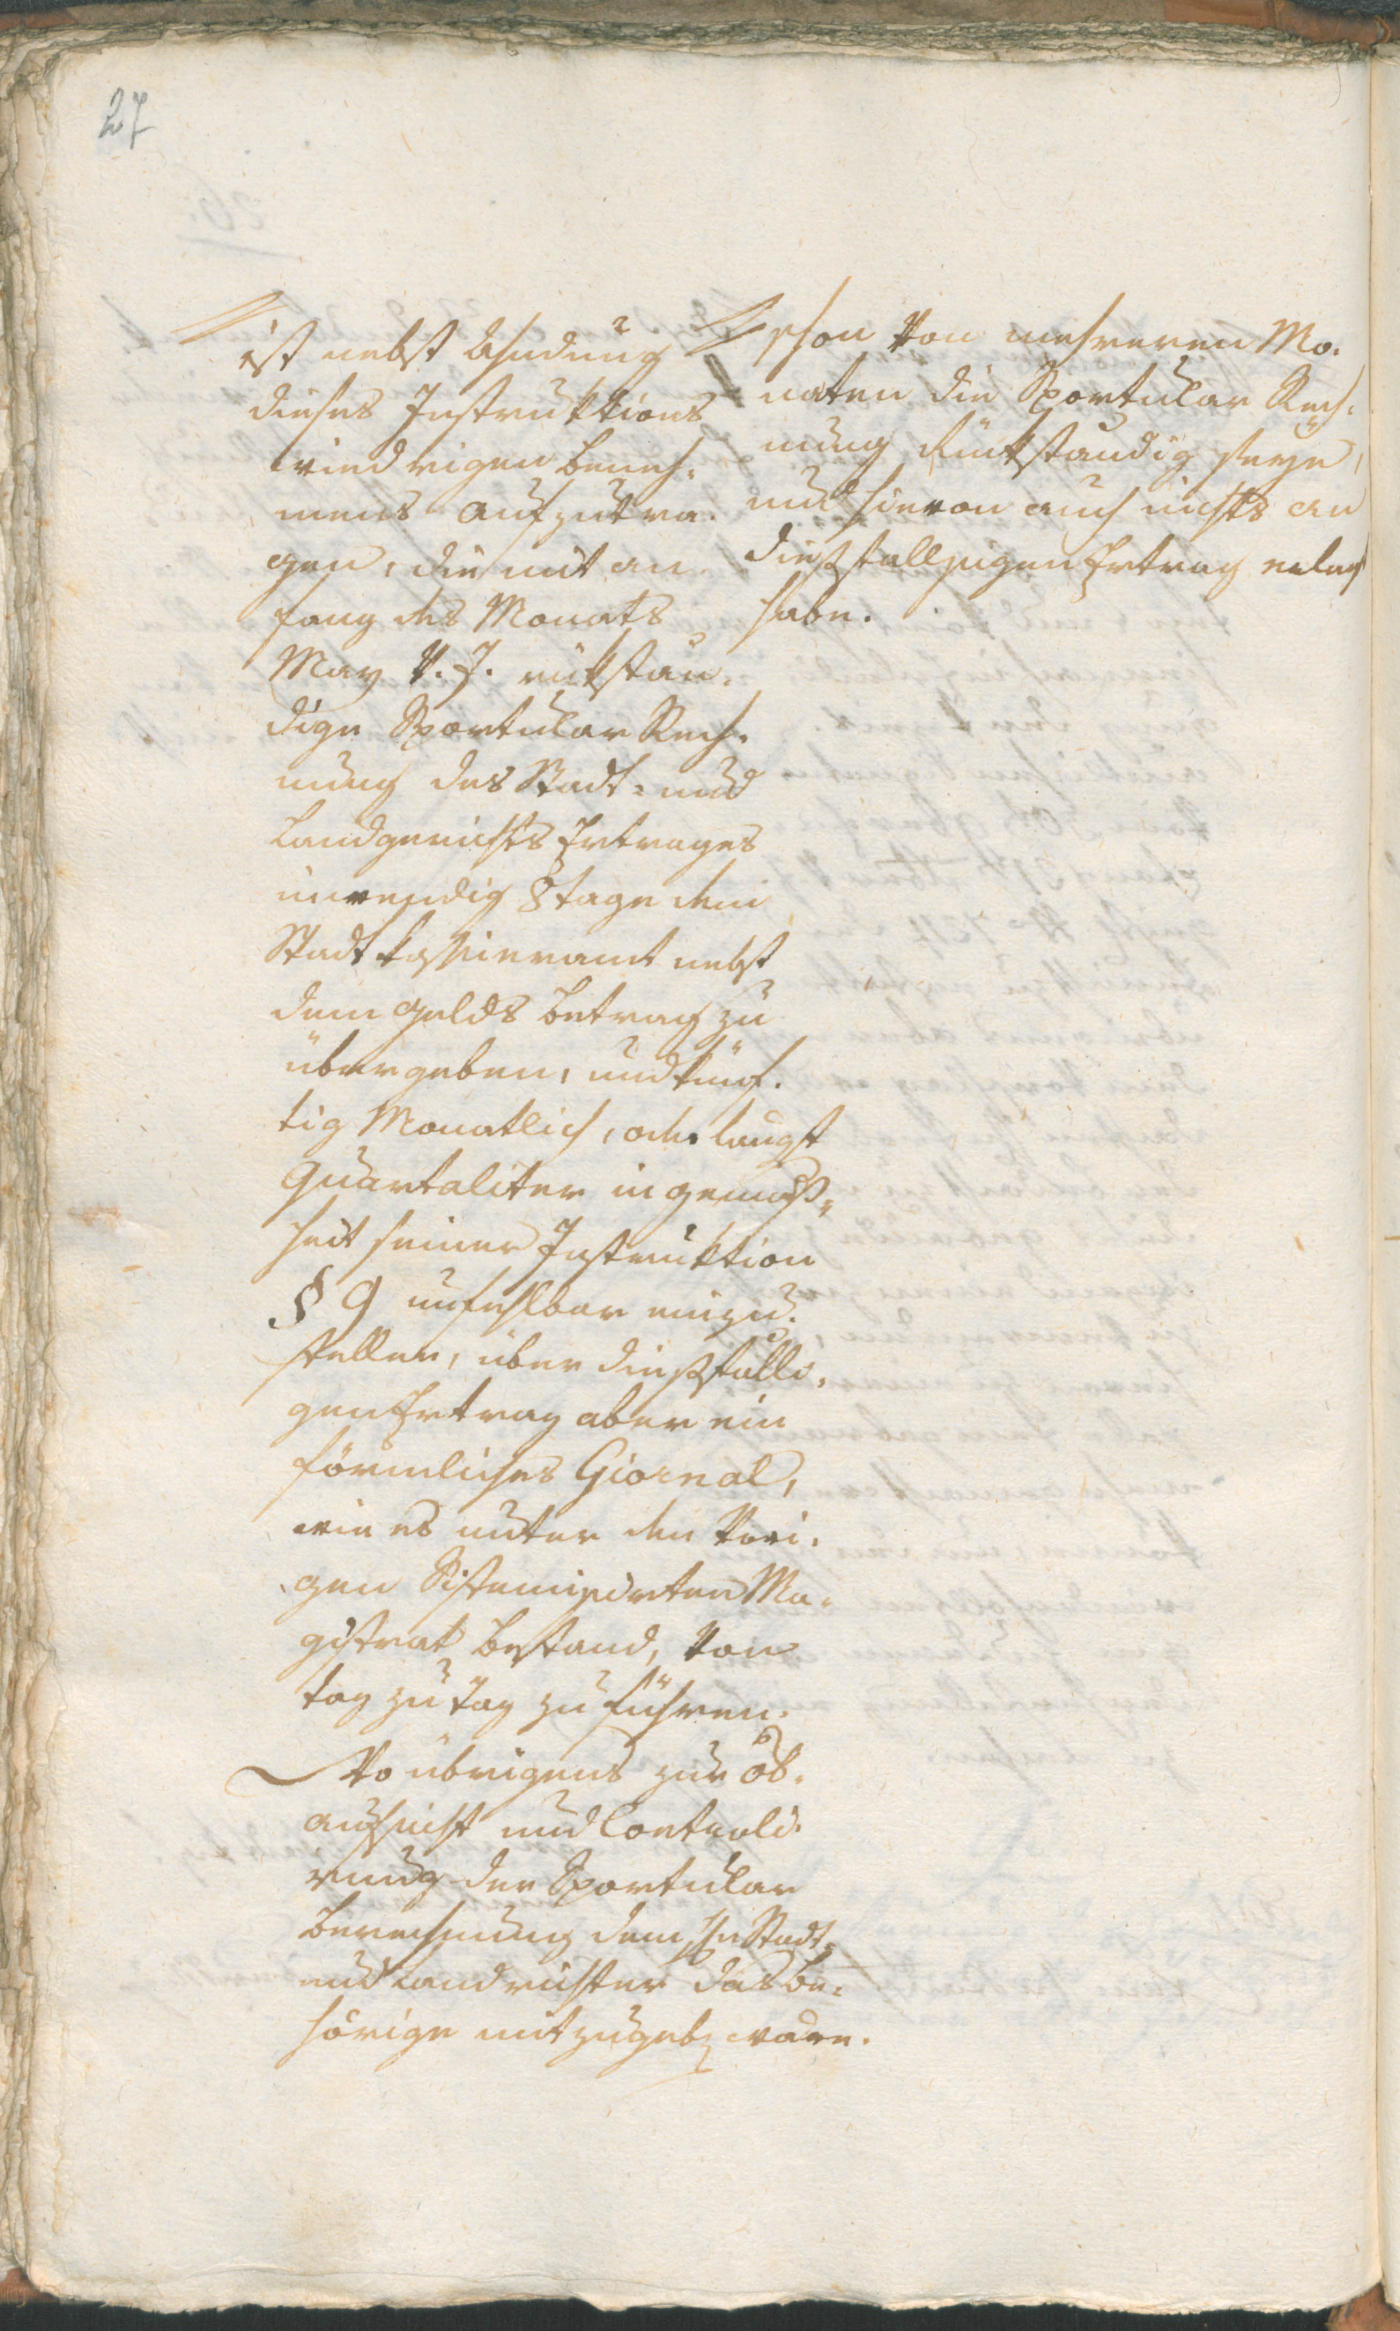 27
ist nebst Ahndung
dieses Instruktions
wiedrigen Beneh-
mens aufzutra-
gen, die mit an-
fang des Monats
May v. J. rükstän-
dige Sportular Rech-
nung des Stadt- und
Landgerichts Ertrages
inwendig 8 tage dem
Stadt kassieramt nebst
dem gelds Betrag zu
übergeben, und künf-
tig Monatlich, oder längst
Quartaliter in gemäß-
heit seiner Instruktion
§ 9 unfehlbar einzu-
stellen, über dießfälli-
gen Ertrag aber ein
förmliches Giornal,
wie es unter dem vori-
gen Sistemisirten Ma-
gistrat bestand, von
tag zu tag zu führen.
Wo übrigens zur Ob-
aufsicht und Controli-
rung der Sportular
Berechnung dem Hr Stadt-
und Landrichter das be-
hörige mitzugeben wäre.
schon von mehreren Mo-
naten die Sportular Rech-
nung Rükständig seye,
und hievon auch nichts an
dießfallsigen Ertrag erlegt
habe.